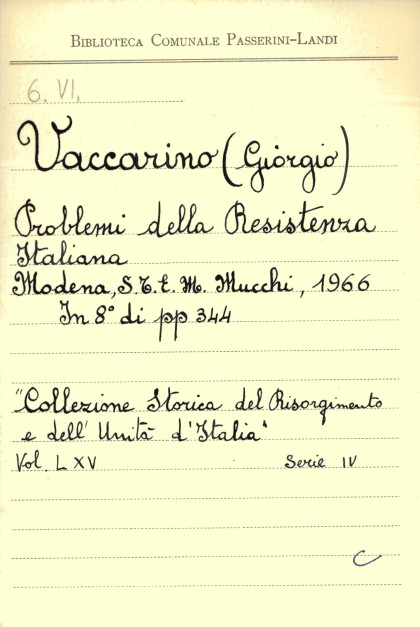 BIBLIOTECA COMUNALE PASSERINI-LANDI
6. VI.
Vaccarino (Giorgio)
Problemi della Resistenza
Italiana
Modena, S.T.E.M. Mucchi, 1966
In 8° di pp 344
"Collezione Storica del Risorgimento
e dell'Unità d'Italia"
Vol. LXV Serie IV
C